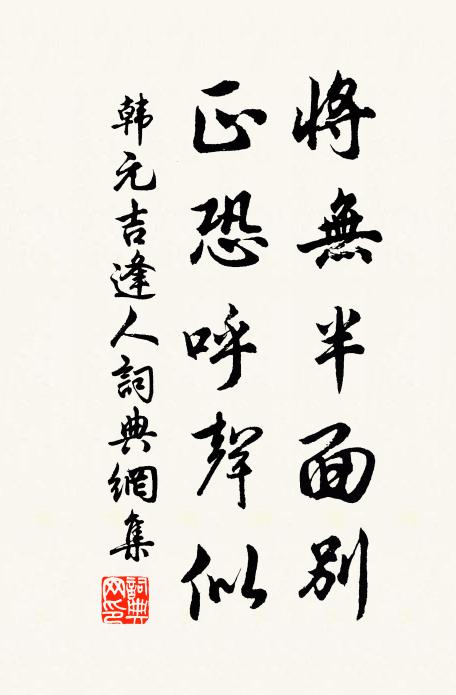 將無半面別
正恐呼聲似
韩元吉逢人詞典網集
詞典网印